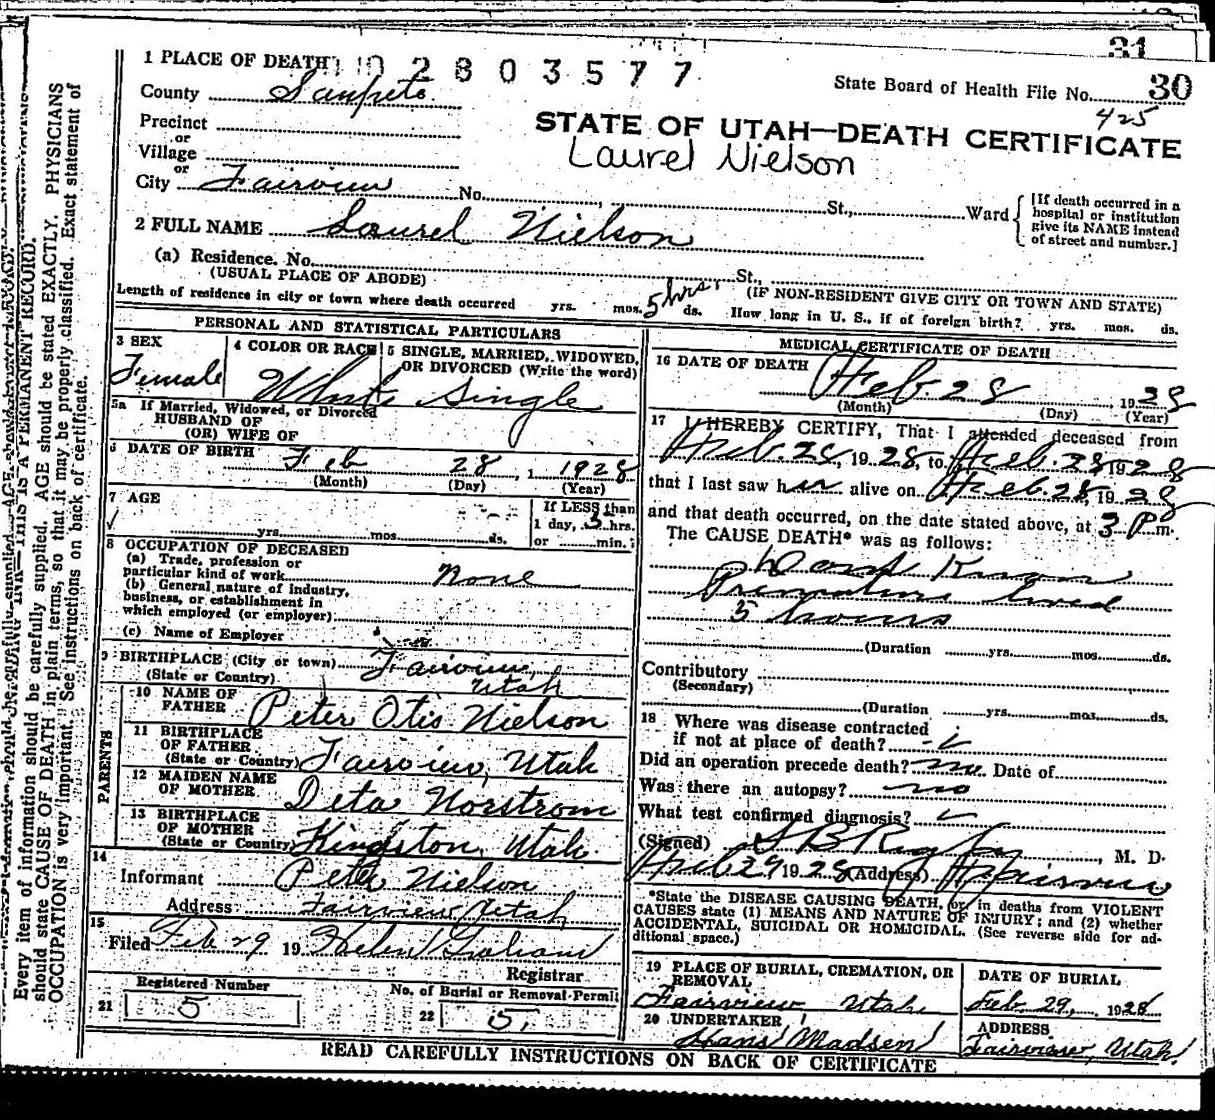 31
1 PLACE OF DEATH 2803577
State Board of Health File No. 30
County Sanpete
425
Precinct
STATE OF UTAH—DEATH CERTIFICATE
or
Village
Laurel Nielson
or
City Fairview No. , St., Ward
[If death occurred in a
hospital or institution
give its NAME instead
of street and number.]
2 FULL NAME Laurel Nielson
(a) Residence. No. St.,
(USUAL PLACE OF ABODE)
(IF NON-RESIDENT GIVE CITY OR TOWN AND STATE)
Length of residence in city or town where death occurred yrs. mos. 5 hrs. ds. How long in U. S., if of foreign birth? yrs. mos. ds.
PERSONAL AND STATISTICAL PARTICULARS
3 SEX
Female
4 COLOR OR RACE
White
5 SINGLE, MARRIED, WIDOWED,
OR DIVORCED (Write the word)
Single
5a If Married, Widowed, or Divorced
HUSBAND OF
(OR) WIFE OF
6 DATE OF BIRTH Feb 28, 1928
(Month) (Day) (Year)
7 AGE
yrs. mos. ds.
If LESS than
1 day, 5 hrs.
or min.
8 OCCUPATION OF DECEASED
(a) Trade, profession or
particular kind of work none
(b) General nature of industry,
business, or establishment in
which employed (or employer)
(c) Name of Employer
9 BIRTHPLACE (City or town) Fairview,
(State or Country) Utah
PARENTS
10 NAME OF
FATHER Peter Otis Nielson
11 BIRTHPLACE
OF FATHER
(State or Country) Fairview, Utah
12 MAIDEN NAME
OF MOTHER Deta Norstrom
13 BIRTHPLACE
OF MOTHER
(State or Country) Kingston, Utah.
14
Informant Peter Nielson
Address Fairview, Utah,
15
Filed Feb 29 19 Helen Graham
Registrar
Registered Number
21 5
No. of Burial or Removal Permit
22 5,
MEDICAL CERTIFICATE OF DEATH
16 DATE OF DEATH
Feb. 28 1928
(Month) (Day) (Year)
17 I HEREBY CERTIFY, That I attended deceased from
Feb. 28, 1928, to Feb. 28 1928
that I last saw her alive on Feb. 28, 1928
and that death occurred, on the date stated above, at 3 Pm.
The CAUSE DEATH* was as follows:
Dont Know
Premature lived
5 hours
(Duration yrs. mos. ds.
Contributory
(Secondary)
(Duration yrs. mos. ds.
18 Where was disease contracted
if not at place of death?
Did an operation precede death? no Date of
Was there an autopsy? no
What test confirmed diagnosis?
(Signed) S B Rigby, M. D.
Feb 29 1928 (Address) Fairview
*State the DISEASE CAUSING DEATH, or, in deaths from VIOLENT
CAUSES state (1) MEANS AND NATURE OF INJURY; and (2) whether
ACCIDENTAL, SUICIDAL OR HOMICIDAL. (See reverse side for ad-
ditional space.)
19 PLACE OF BURIAL, CREMATION, OR
REMOVAL
Fairview Utah
DATE OF BURIAL
Feb. 29, 1928
20 UNDERTAKER
Hans Madsen
ADDRESS
Fairview, Utah
READ CAREFULLY INSTRUCTIONS ON BACK OF CERTIFICATE
THIS IS A PERMANENT RECORD.
Every item of information should be carefully supplied. AGE should be stated EXACTLY. PHYSICIANS
should state CAUSE OF DEATH in plain terms, so that it may be properly classified. Exact statement of
OCCUPATION is very important. See instructions on back of certificate.